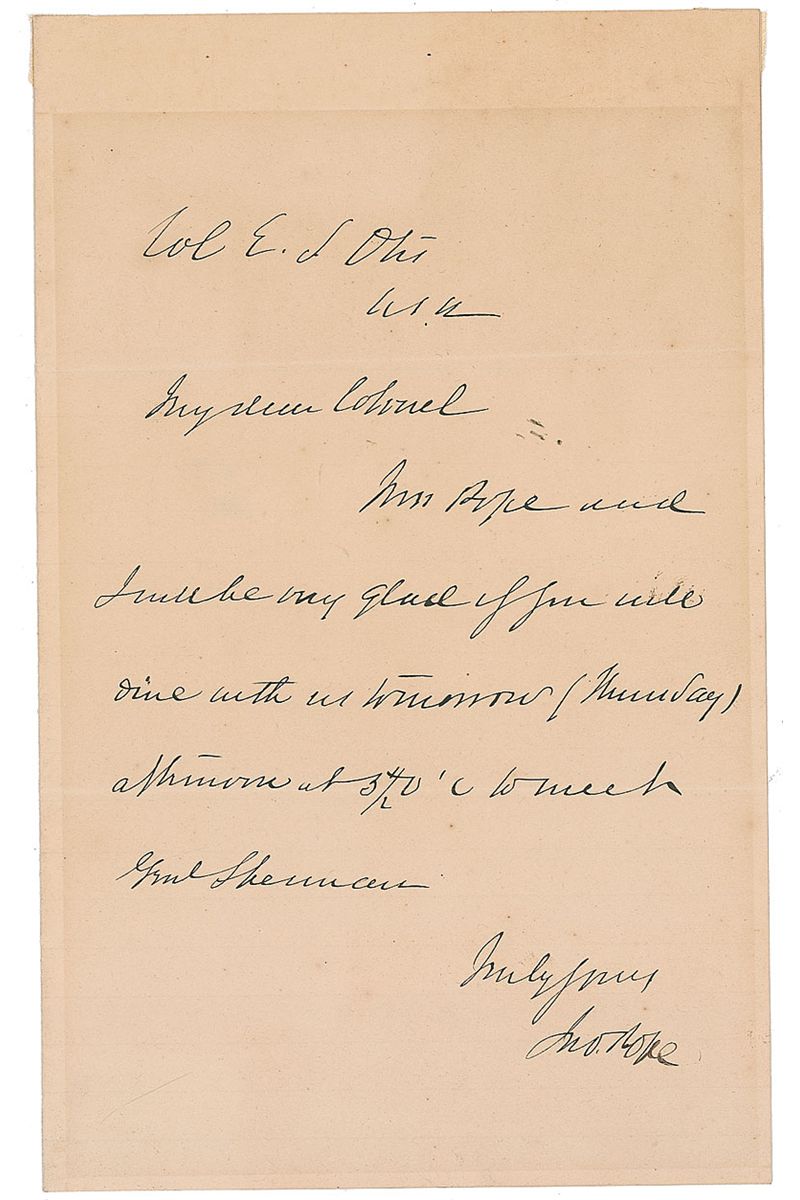 Col E. S Otis
U.S.A
My dear Colonel
Mrs Pope and
I will be very glad if you will
dine with us tomorrow (Thursday)
afternoon at 3 1/2 O'c to meet
Genl Sherman
Truly yours
Jno. Pope